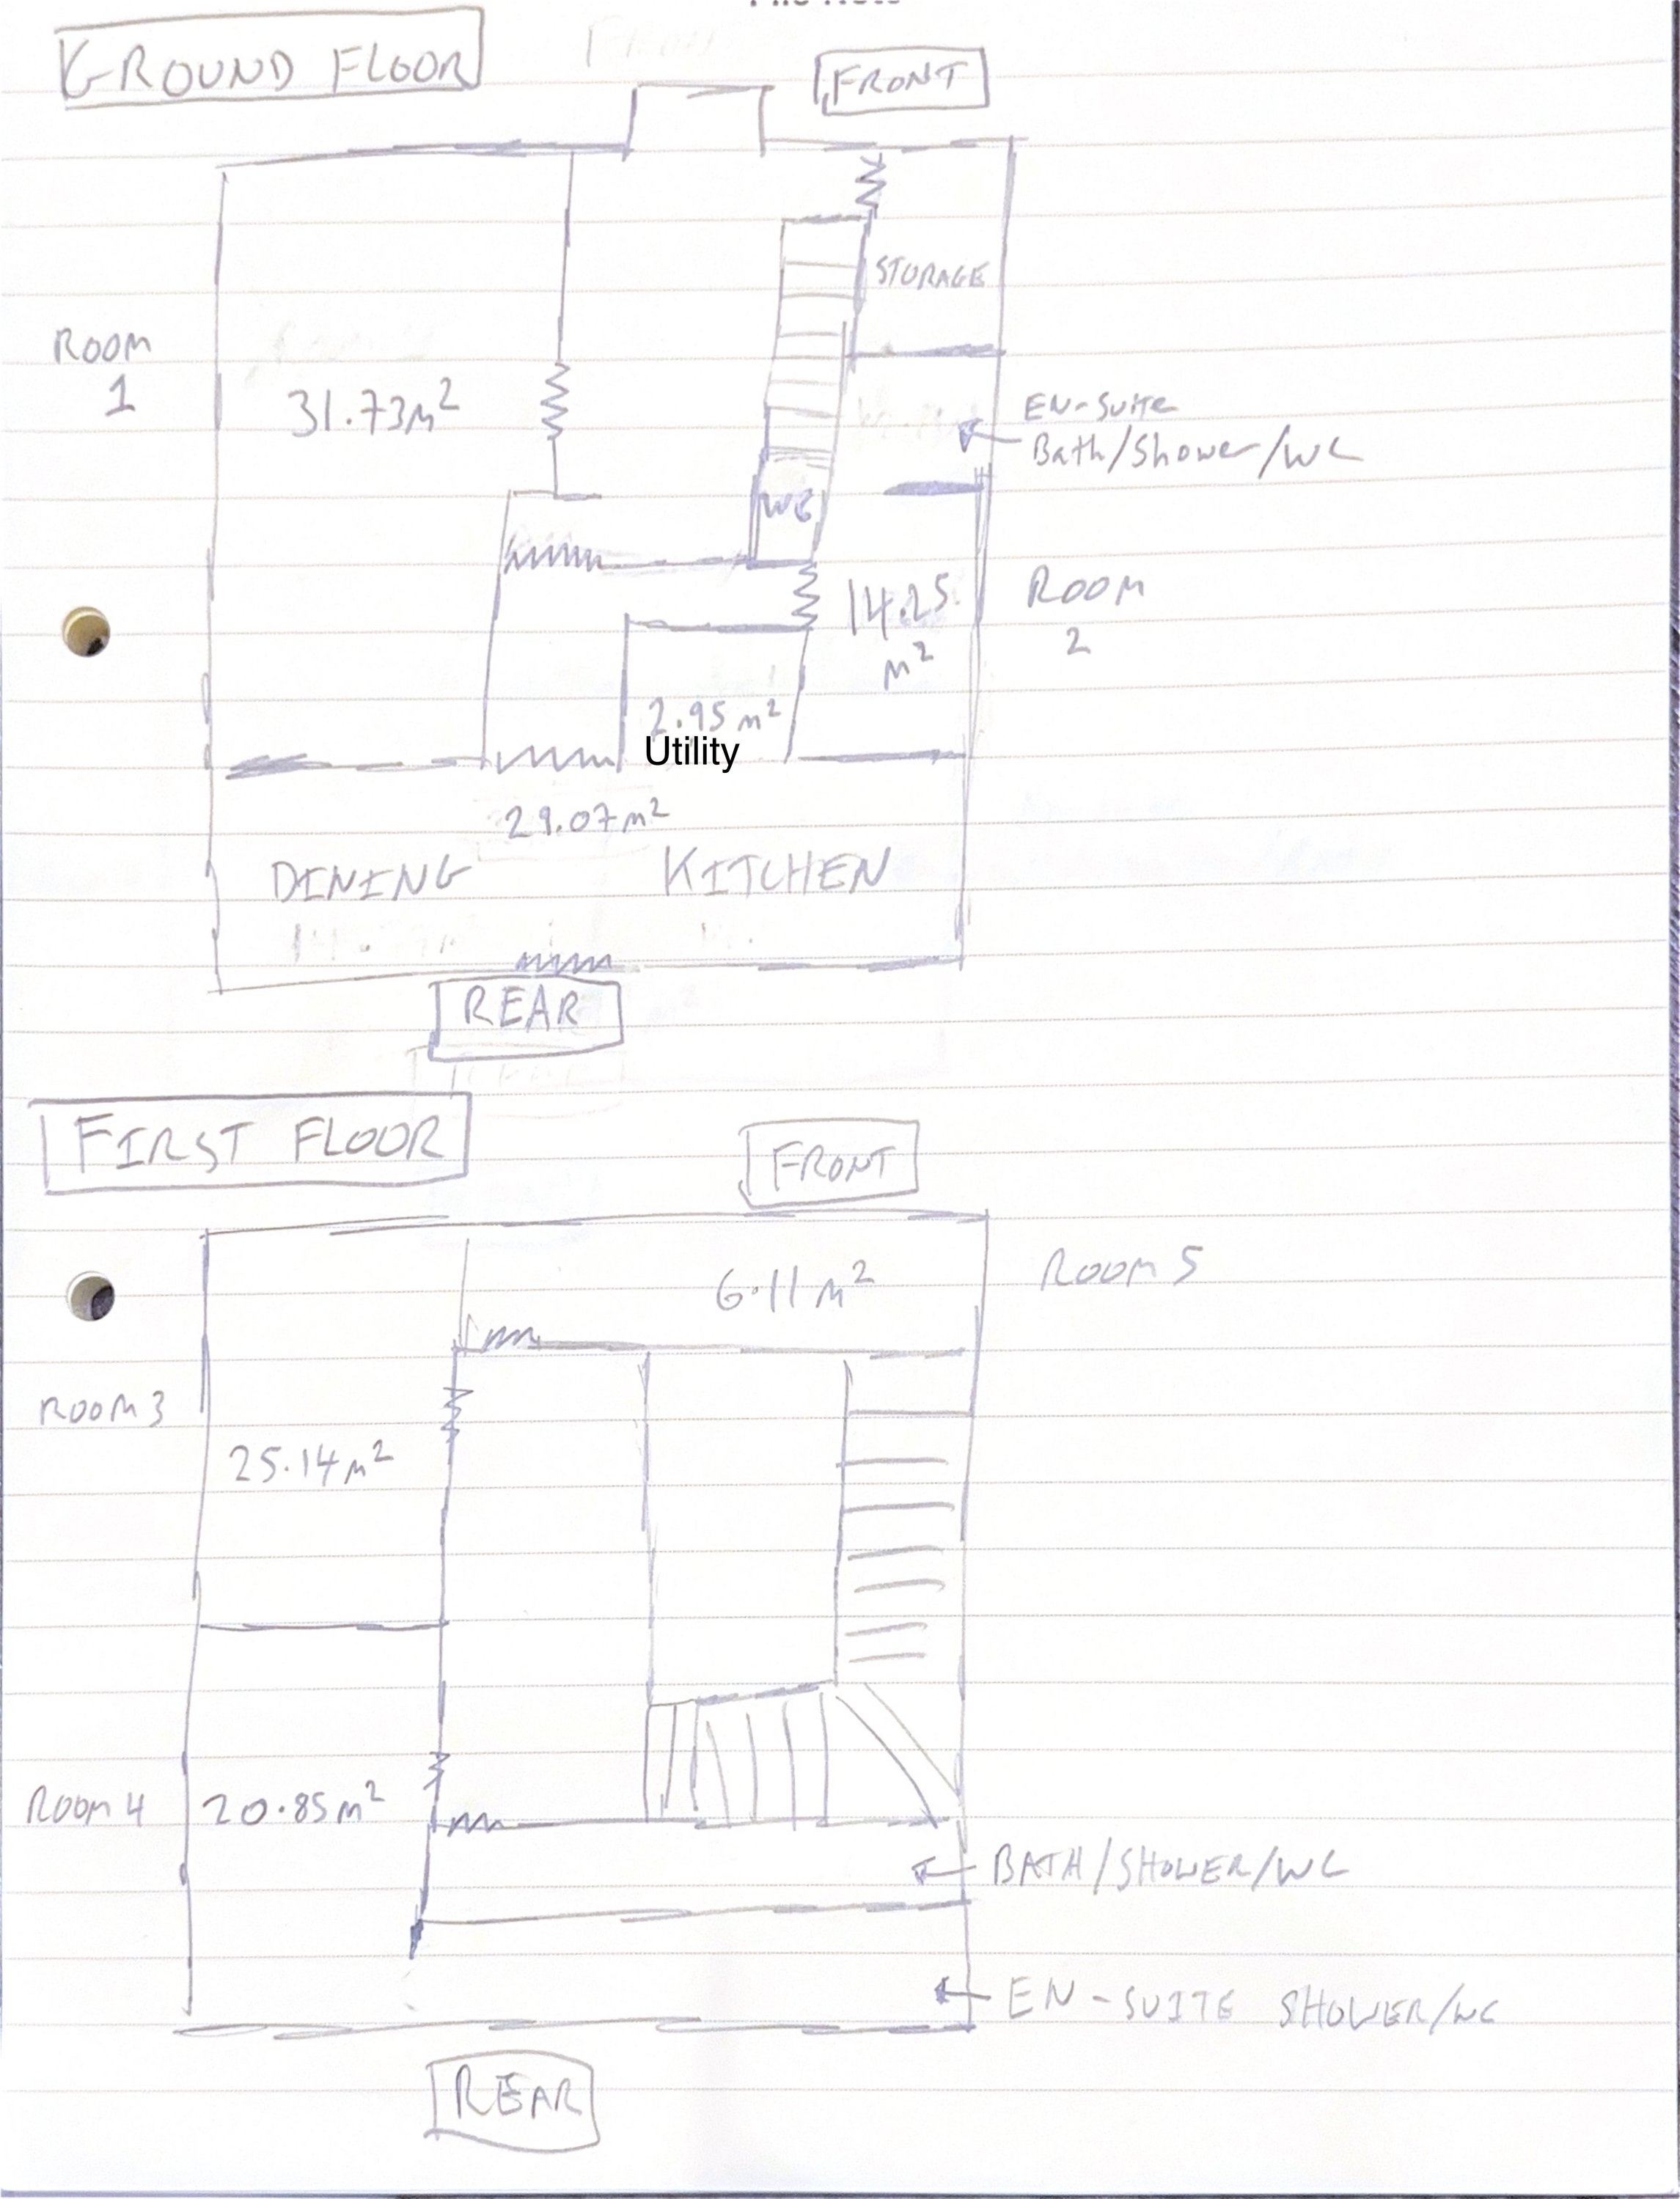 GROUND FLOOR
FRONT
STORAGE
ROOM
1
31.73m²
EN-SUITE
Bath/Shower/WC
WC
14.25
m²
ROOM
2
2.95m²
Utility
29.07m²
DINING
KITCHEN
REAR
FIRST FLOOR
FRONT
6.11m²
ROOM 5
ROOM 3
25.14m²
ROOM 4
20.85m²
BATH/SHOWER/WC
EN-SUITE SHOWER/WC
REAR